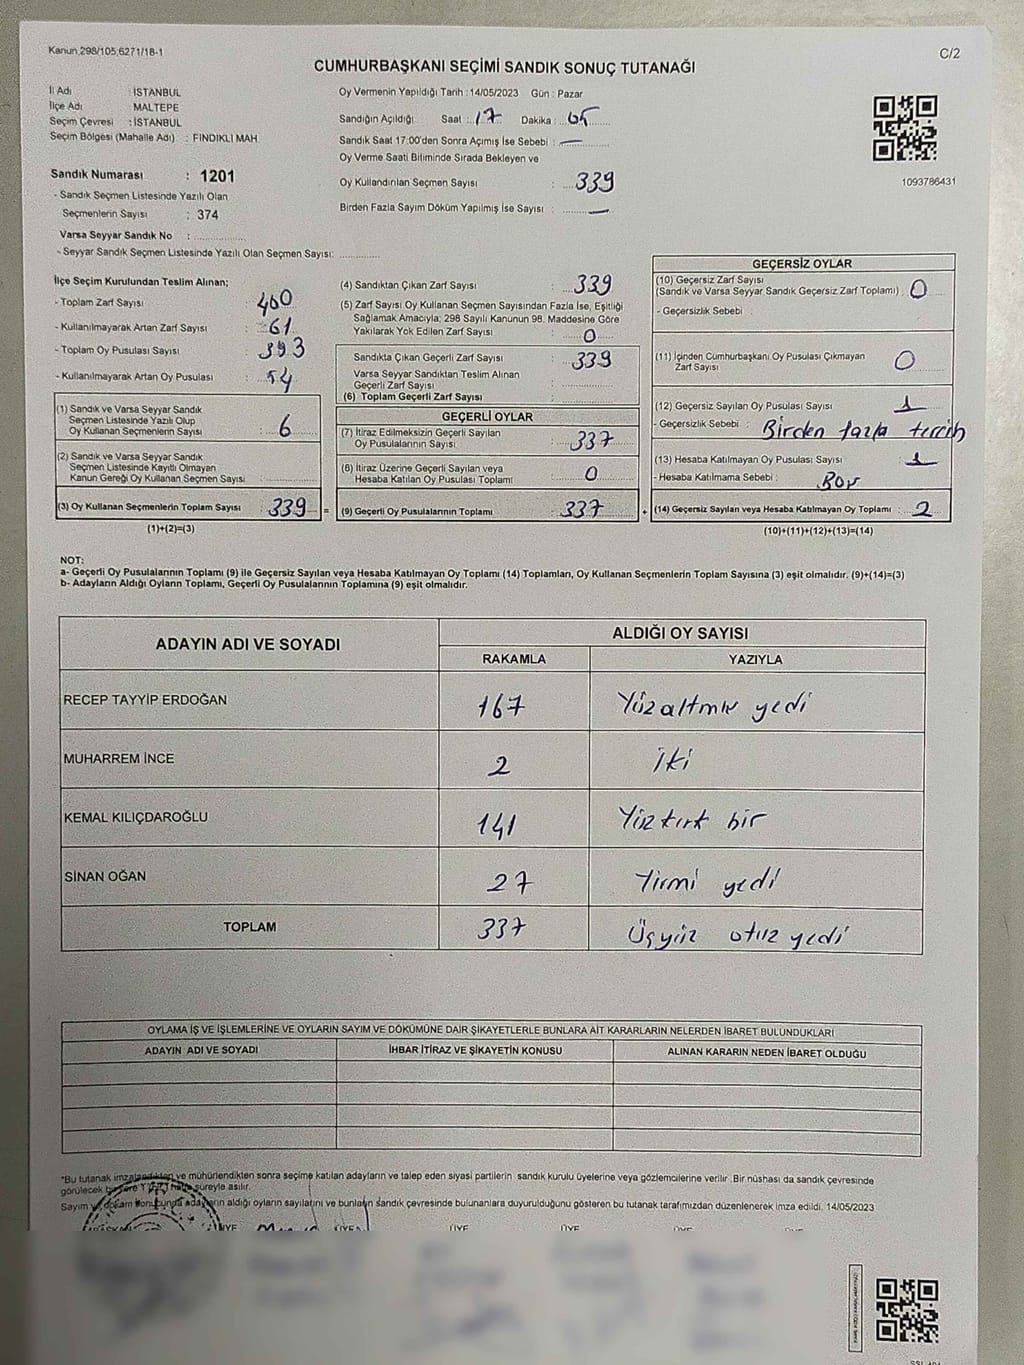 Kanun,298/105,6271/18-1
C/2
CUMHURBAŞKANI SEÇİMİ SANDIK SONUÇ TUTANAĞI
İl Adı : İSTANBUL
İlçe Adı MALTEPE
Seçim Çevresi : İSTANBUL
Seçim Bölgesi (Mahalle Adı) : FINDIKLI MAH.
Sandık Numarası : 1201
- Sandık Seçmen Listesinde Yazılı Olan
Seçmenlerin Sayısı : 374
Varsa Seyyar Sandık No :
- Seyyar Sandık Seçmen Listesinde Yazılı Olan Seçmen Sayısı:
Oy Vermenin Yapıldığı Tarih :14/05/2023 Gün : Pazar
Sandığın Açıldığı Saat : 17 Dakika : 05
Sandık Saat 17:00'den Sonra Açımış İse Sebebi : —
Oy Verme Saati Bitiminde Sırada Bekleyen ve
Oy Kullandırılan Seçmen Sayısı : 339
Birden Fazla Sayım Döküm Yapılmış İse Sayısı : —
1093786431
İlçe Seçim Kurulundan Teslim Alınan;
- Toplam Zarf Sayısı : 400
- Kullanılmayarak Artan Zarf Sayısı : 61
- Toplam Oy Pusulası Sayısı : 393
- Kullanılmayarak Artan Oy Pusulası : 54
(1) Sandık ve Varsa Seyyar Sandık
Seçmen Listesinde Yazılı Olup
Oy Kullanan Seçmenlerin Sayısı : 6
(2) Sandık ve Varsa Seyyar Sandık
Seçmen Listesinde Kayıtlı Olmayan
Kanun Gereği Oy Kullanan Seçmen Sayısı :
(3) Oy Kullanan Seçmenlerin Toplam Sayısı : 339 =
(1)+(2)=(3)
(4) Sandıktan Çıkan Zarf Sayısı : 339
(5) Zarf Sayısı Oy Kullanan Seçmen Sayısından Fazla İse, Eşitliği
Sağlamak Amacıyla; 298 Sayılı Kanunun 98. Maddesine Göre
Yakılarak Yok Edilen Zarf Sayısı : 0
Sandıkta Çıkan Geçerli Zarf Sayısı : 339
Varsa Seyyar Sandıktan Teslim Alınan
Geçerli Zarf Sayısı :
(6) Toplam Geçerli Zarf Sayısı :
GEÇERLİ OYLAR
(7) İtiraz Edilmeksizin Geçerli Sayılan
Oy Pusulalarının Sayısı : 337
(8) İtiraz Üzerine Geçerli Sayılan veya
Hesaba Katılan Oy Pusulası Toplamı : 0
(9) Geçerli Oy Pusulalarının Toplamı : 337 +
GEÇERSİZ OYLAR
(10) Geçersiz Zarf Sayısı
(Sandık ve Varsa Seyyar Sandık Geçersiz Zarf Toplamı) : 0
- Geçersizlik Sebebi :
(11) İçinden Cumhurbaşkanı Oy Pusulası Çıkmayan
Zarf Sayısı : 0
(12) Geçersiz Sayılan Oy Pusulası Sayısı : 1
- Geçersizlik Sebebi : Birden fazla tercih
(13) Hesaba Katılmayan Oy Pusulası Sayısı : 1
- Hesaba Katılmama Sebebi :
(14) Geçersiz Sayılan veya Hesaba Katılmayan Oy Toplamı : 2
(10)+(11)+(12)+(13)=(14)
NOT:
a- Geçerli Oy Pusulalarının Toplamı (9) ile Geçersiz Sayılan veya Hesaba Katılmayan Oy Toplamı (14) Toplamları, Oy Kullanan Seçmenlerin Toplam Sayısına (3) eşit olmalıdır. (9)+(14)=(3)
b- Adayların Aldığı Oyların Toplamı, Geçerli Oy Pusulalarının Toplamına (9) eşit olmalıdır.
ADAYIN ADI VE SOYADI ALDIĞI OY SAYISI
RAKAMLA YAZIYLA
RECEP TAYYİP ERDOĞAN 167 Yüzaltmış yedi
MUHARREM İNCE 2 iki
KEMAL KILIÇDAROĞLU 141 Yüzkırk bir
SİNAN OĞAN 27 Yirmi yedi
TOPLAM 337 Üçyüz otuz yedi
OYLAMA İŞ VE İŞLEMLERİNE VE OYLARIN SAYIM VE DÖKÜMÜNE DAİR ŞİKAYETLERLE BUNLARA AİT KARARLARIN NELERDEN İBARET BULUNDUKLARI
ADAYIN ADI VE SOYADI İHBAR İTİRAZ VE ŞİKAYETİN KONUSU ALINAN KARARIN NEDEN İBARET OLDUĞU
*Bu tutanak imzalandıktan ve mühürlendikten sonra seçime katılan adayların ve talep eden siyasi partilerin sandık kurulu üyelerine veya gözlemcilerine verilir. Bir nüshası da sandık çevresinde
görülecek süreyle asılır.
Sayım ve döküm sonucunda adayların aldığı oyların sayılarını ve bunların sandık çevresinde bulunanlara duyurulduğunu gösteren bu tutanak tarafımızdan düzenlenerek imza edildi. 14/05/2023
ÜYE ÜYE ÜYE ÜYE ÜYE